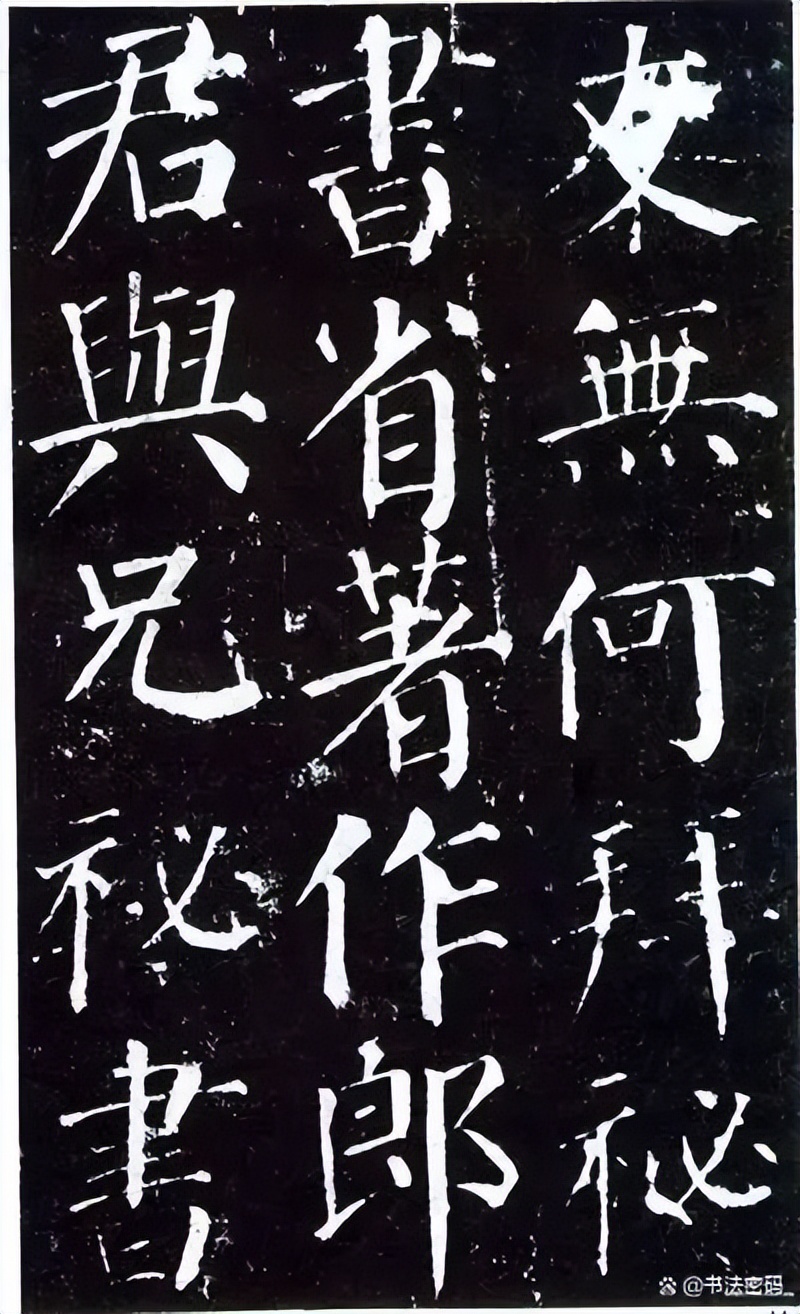 無何拜祕
書省著作郎
君與兄祕書
@书法密码